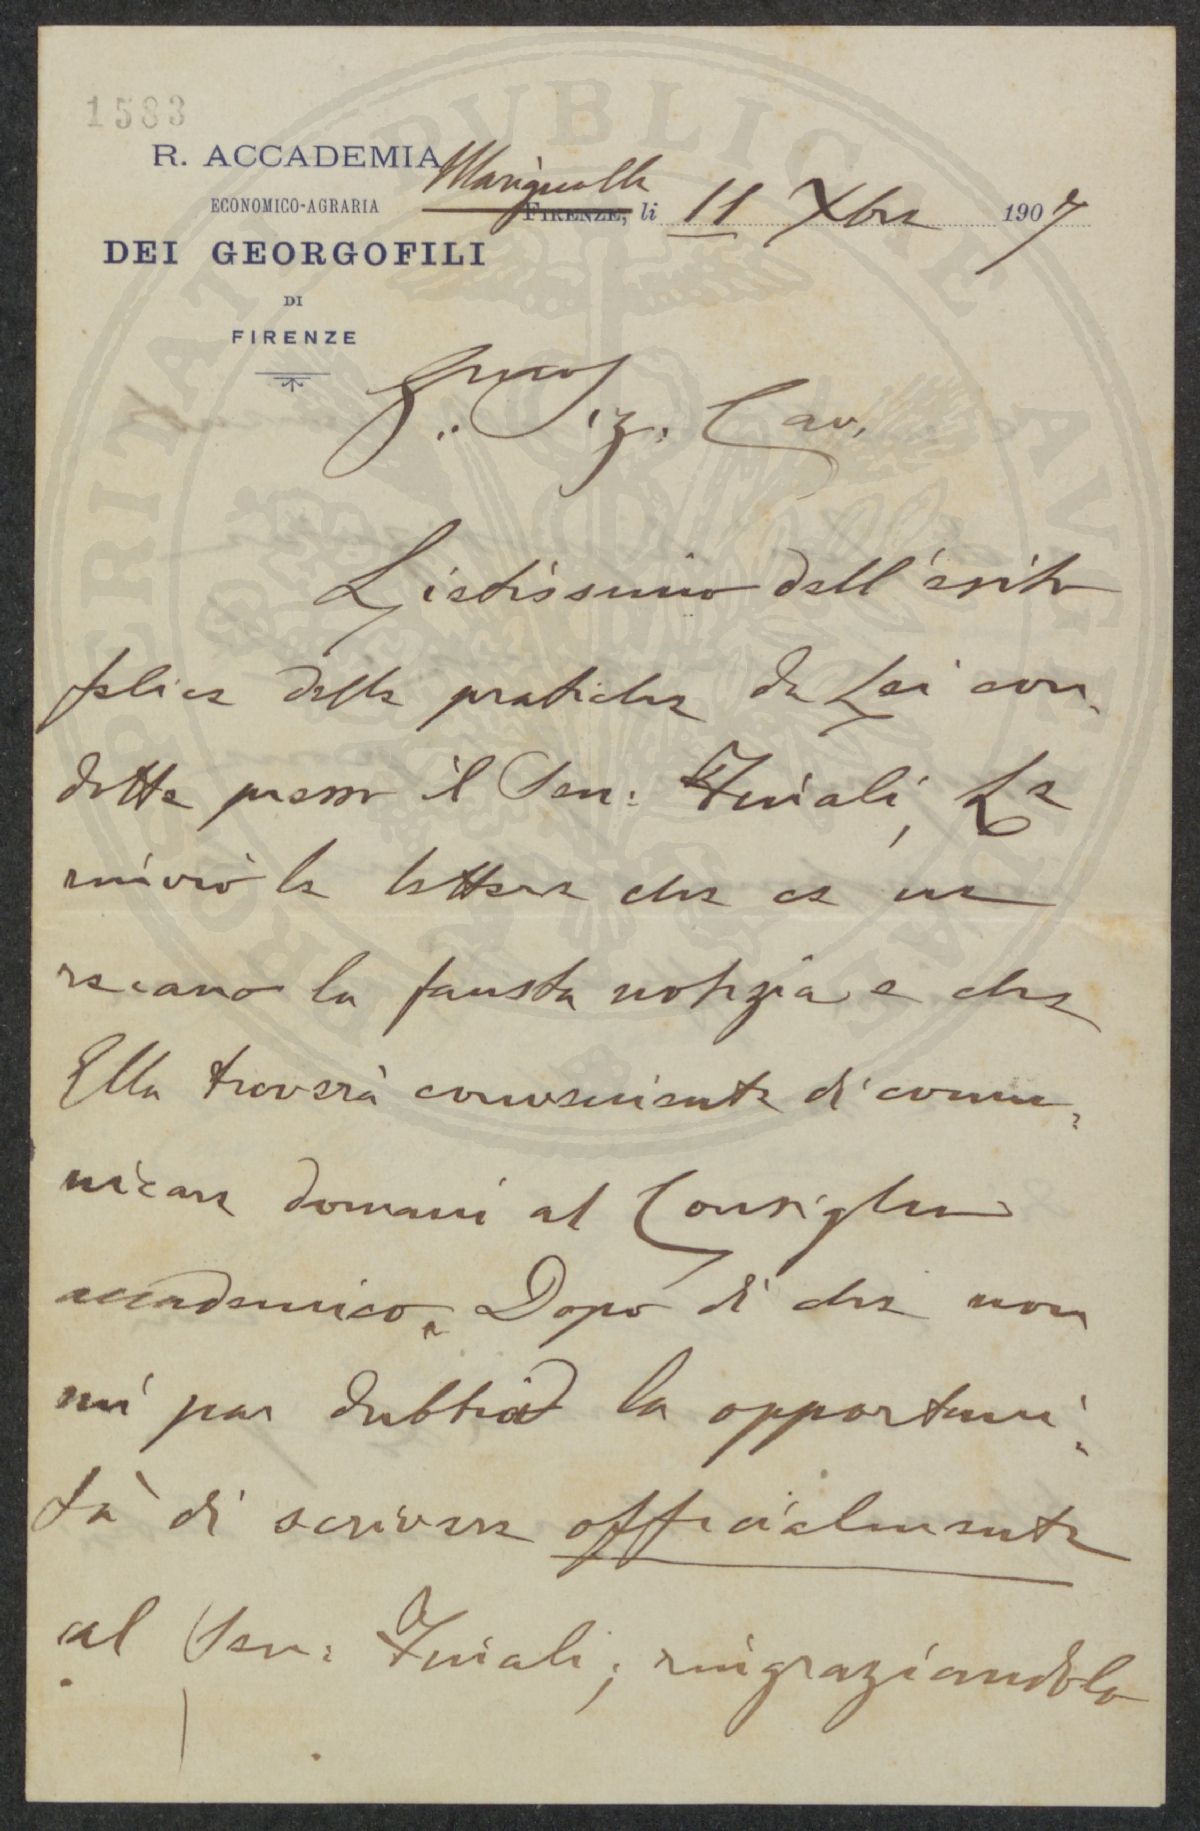 1583
R. ACCADEMIA
ECONOMICO-AGRARIA
DEI GEORGOFILI
DI
FIRENZE
Marignolle
FIRENZE, li 11 Xbre 1907
Sig. Cav.
Lietissimo dell'esito
felice delle pratiche da Lei con-
dotte presso il Sen: Finali, Le
rinvio le lettere che ce ne
recano la fausta notizia e che
Ella troverà conveniente di comu-
nicare domani al Consiglio
accademico. Dopo di che non
mi par dubbia la opportuni-
tà di scrivere officialmente
al Sen: Finali, ringraziandolo
PROSPERITATI PUBLICAE AUGENDAE